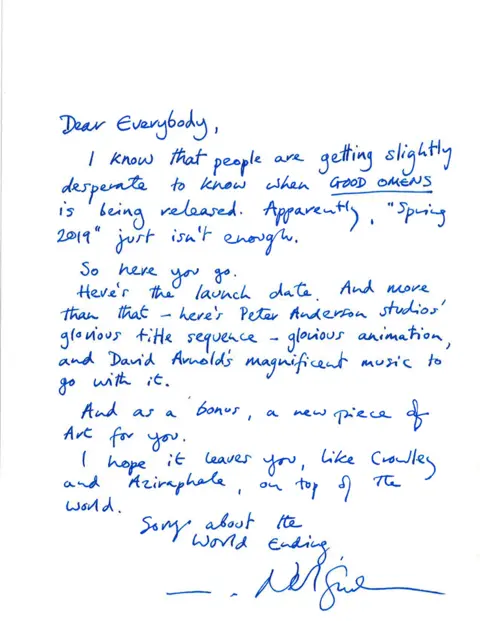 Dear Everybody,
I know that people are getting slightly
desperate to know when GOOD OMENS
is being released. Apparently, "Spring
2019" just isn't enough.
So here you go.
Here's the launch date. And more
than that – here's Peter Anderson Studios'
glorious title sequence – glorious animation,
and David Arnold's magnificent music to
go with it.
And as a bonus, a new piece of
Art for you.
I hope it leaves you, like Crowley
and Aziraphale, on top of the
world.
Sorry about the
World Ending,